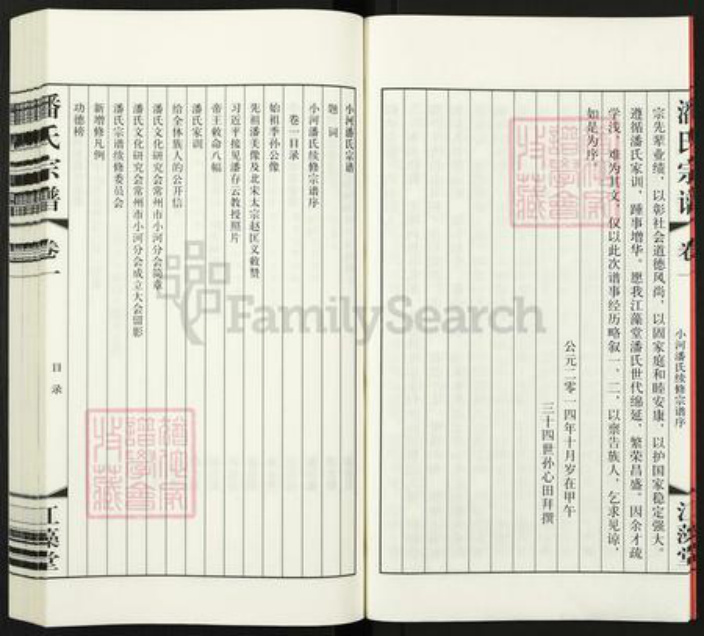 潘氏宗谱
卷一
小河潘氏续修宗谱序
江藻堂
宗先辈业绩，以彰社会道德风尚，以固家庭和睦安康，以护国家稳定强大。
遵循潘氏家训，踵事增华。愿我江藻堂潘氏世代绵延，繁荣昌盛。因余才疏
学浅，难为其文，仅以此次谱事经历略叙一、二，以禀告族人，乞求见谅，
如是为序
公元二零一四年十月岁在甲午
三十四世孙心田拜撰
小河潘氏宗谱
题词
小河潘氏续修宗谱序
卷一目录
始祖季孙公像
先祖潘美像及北宋太宗赵匡义敕赞
习近平接见潘存云教授照片
帝王敕命八幅
潘氏家训
给全体族人的公开信
潘氏文化研究会常州市小河分会简章
潘氏文化研究会常州市小河分会成立大会留影
潘氏宗谱续修委员会
新增修凡例
功德榜
潘氏宗谱
卷一
目录
江藻堂
FamilySearch